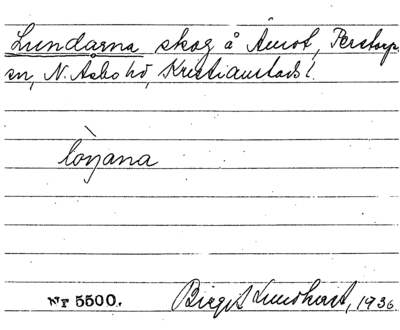 Lundarna skog å Åmot, Perstorps
sn, N. Åsbo hd, Kristianstads l.
lòŋana
Nr 5500. Birgit Lundkvist, 1936